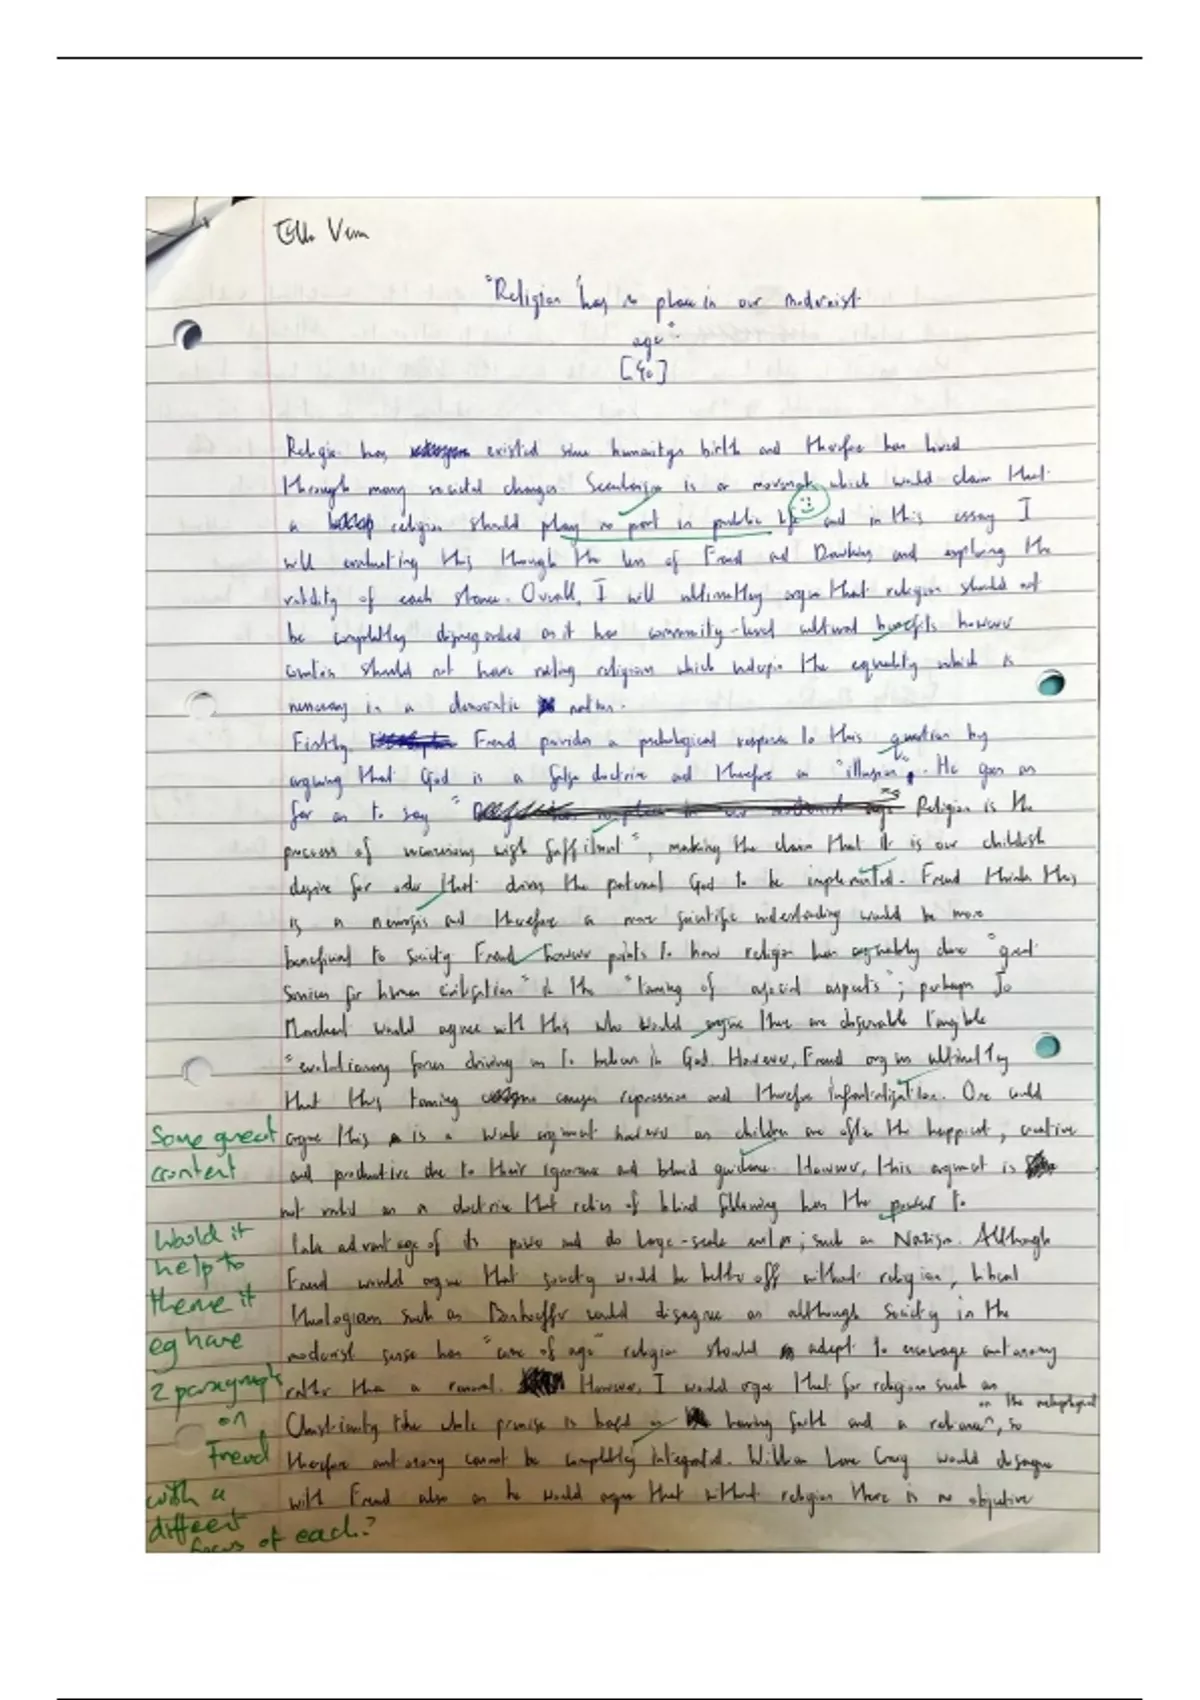 "Religion has no place in our modernist
age".
[40]
Religion has existed since humanitys birth and therefore has lived
through many societal changes. Secularism is a movement which would claim that
a religion should play no part in public life and in this essay I
will evaluating this through the lens of Freud and Dawkins and exploring the
validity of each stance. Overall, I will ultimatley argue that religion should not
be completley disregarded as it has community-level cultural benefits however
should not have religion which the equality which is
nessecary in a democratic nation.
Firstly, Freud provides a pschological response to this question by
arguing that God is a false doctrine and therefore an "illusion". He goes as
far as to say " Religion is the
process of wish fulfilment", making the claim that it is our childish
desire for order that drives the paternal God to be implemented. Freud thinks this
is a and therefore a more scientific understanding would be more
beneficial to society. Freud however points to how religion has arguably done "great
services for human civilisation" in the "taming of asocial aspects"; perhaps Jo
Marchant would agree with this who would argue there are tangible
"evolutionary forces driving us to believe in God. However, Freud argues ultimatley
that this taming causes repression and therefore infantalization. One could
argue this is a weak argument however as children are often the happiest, creative
and productive due to their ignorance and blind guidance. However, this argument is
not valid as a doctrine that relies of blind following has the power to
take advantage of its power and do large-scale evil; such as Nazism. Although
Freud would argue that society would be better off without religion, liberal
theologians such as Bonhoeffer would disagree as although society in the
modernist sense has "come of age" religion should adapt to encourage autonomy
rather than a removal. However, I would argue that for religion such as
on the metaphysical
Christianity the whole premise is based on having faith and a reliance, so
therefore autonomy cannot be completley integrated. William Lane Craig would disagree
with Freud also as he would argue that without religion there is no objective
Some great
content
Would it
help to
theme it
eg have
2 paragraphs
on
Freud
with a
different
focus of each?